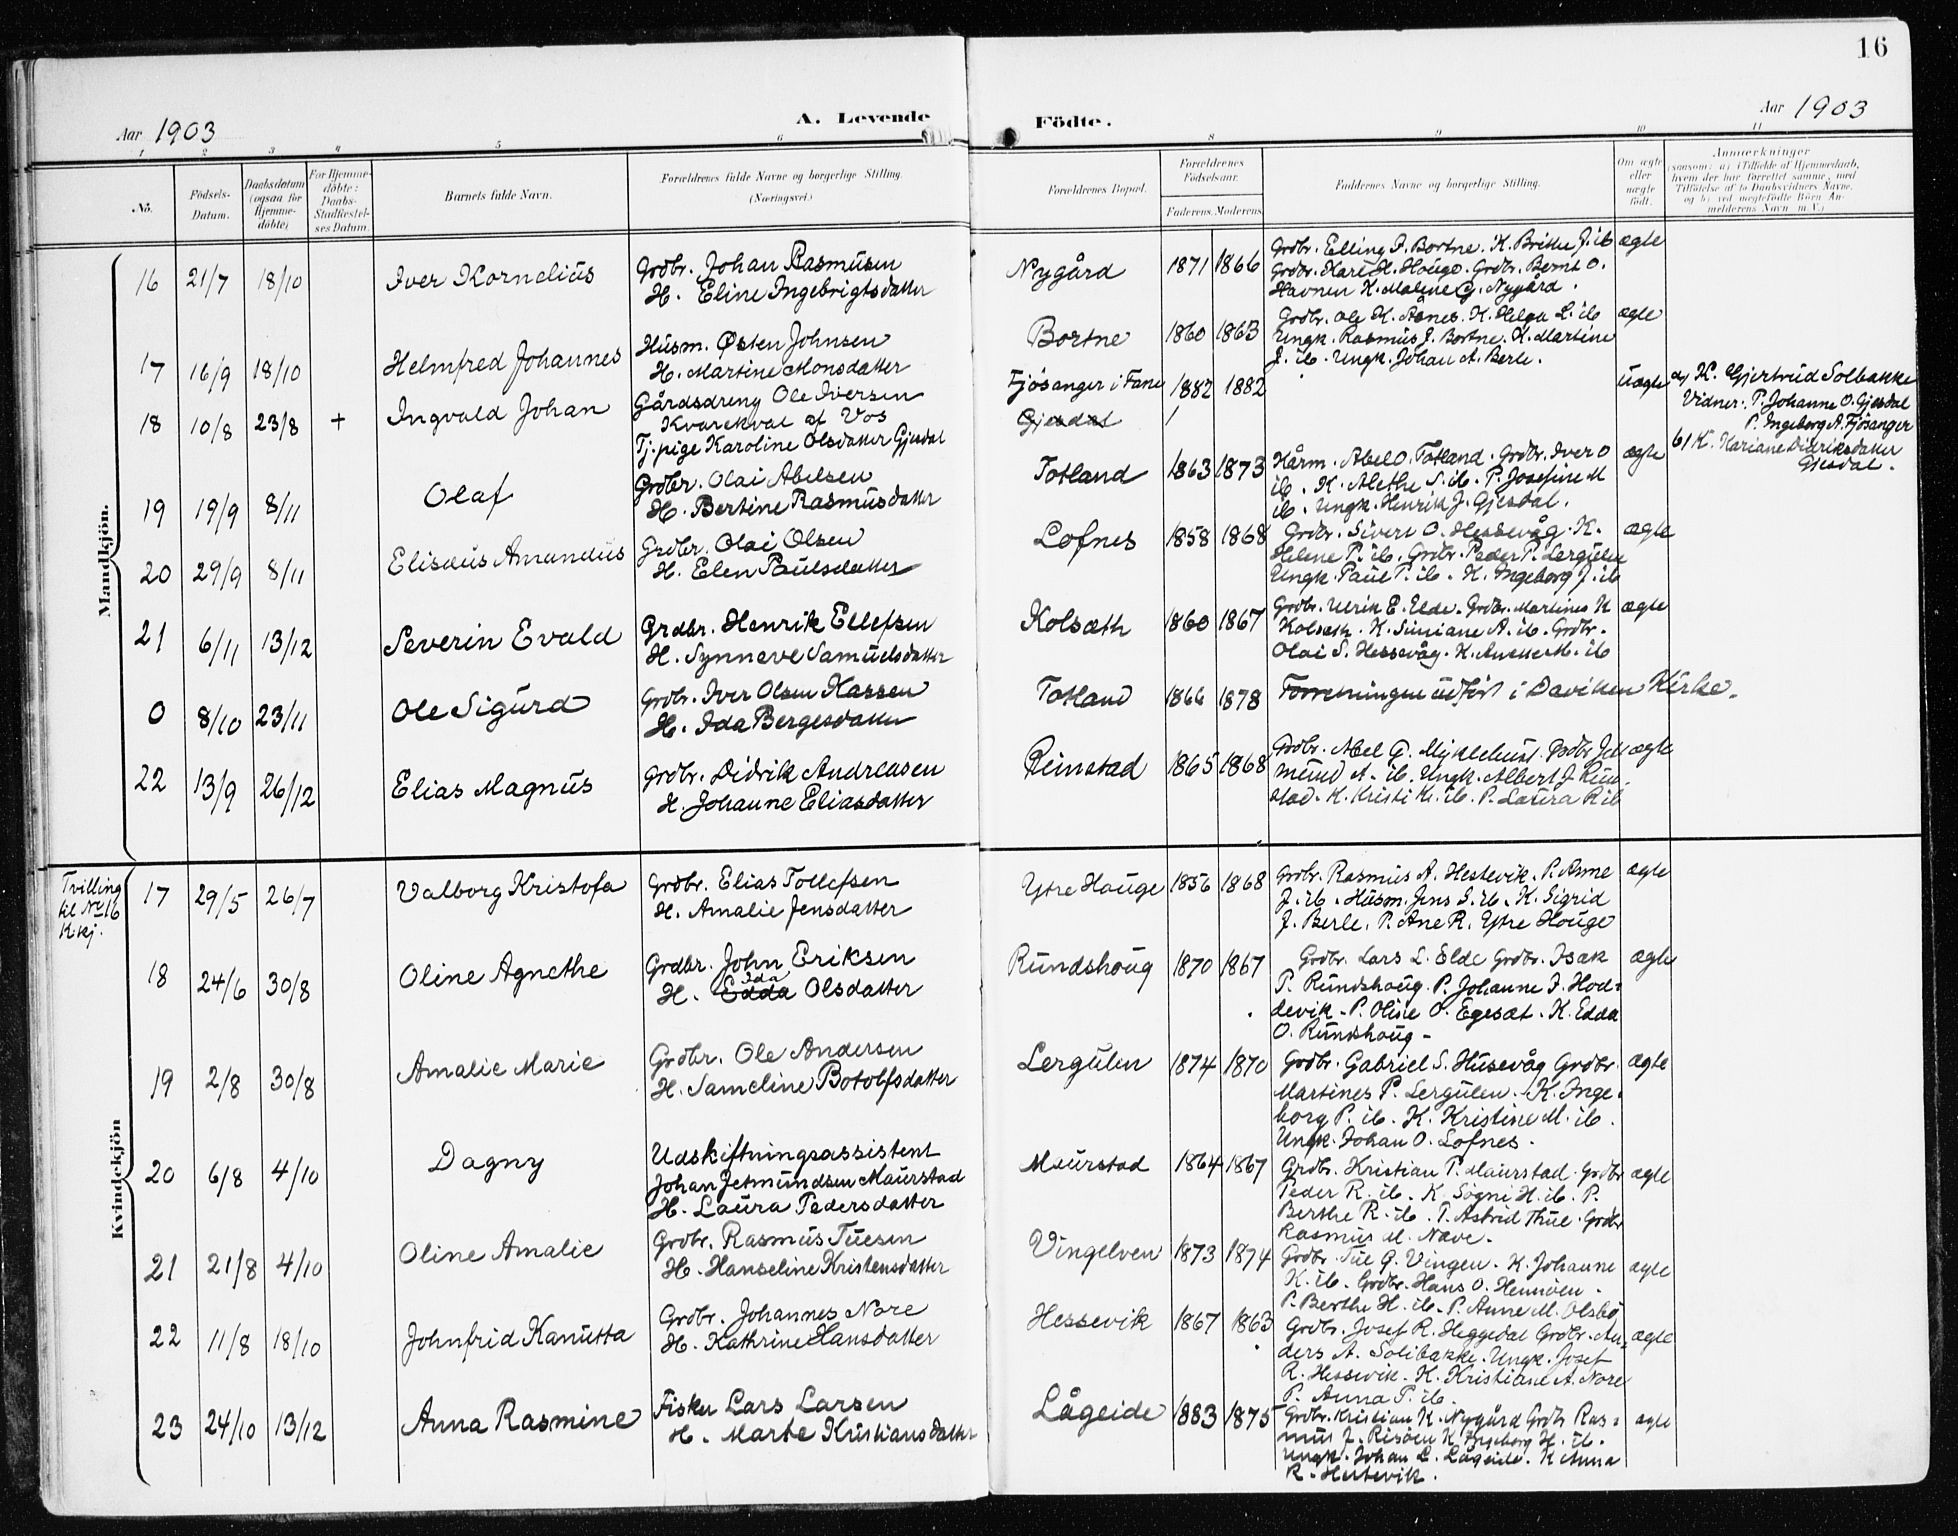 16
Aar 1903
A. Levende
Födte.
Aar 1903
1 2 3 4 5 6 8 9 10 11
No.
Födsels-Datum.
Daabsdatum (ogsaa for Hjemme-döbte)
For Hjemme-döbte: Daabs-Stadfæstel-ses Datum.
Barnets fulde Navn.
Forældrenes fulde Navne og borgerlige Stilling. (Næringsvei.)
Forældrenes Bopæl.
Forældrenes Födselsaar.
Faderens. Moderens.
Faddernes Navne og borgerlige Stilling.
Om ægte eller uægte födt.
Anmærkninger
(saasom: a) i Tilfælde af Hjemmedaab, hvem der har forrettet samme, med Tilföielse af to Daabsvidners Navne, og b) ved uægtefödte Börn An-melderens Navn m. V.)
Mandkjön.
16 21/7 18/10 Iver Kornelius
Grdbr. Johan Rasmusen
H. Eline Ingebrigtsdatter
Nygård 1871 1866
Grdbr. Elling I. Bortne. K. Brithe J. ib
Grdbr. Kare H. Houge. Grdbr. Bernt O.
Havnen K. Malene G. Nygård.
ægte
17 16/9 18/10 Helmfred Johannes
Husm. Østen Johnsen
H. Martine Monsdatter
Bortne 1860 1863
Grdbr. Ole K. Åsnes. K. Helga L. ib
Ungk. Rasmus J. Bortne. K. Martine
J. ib. Ungk. Johan A. Berle.
ægte
18 10/8 23/8 + Ingvald Johan
Gårdsdreng Ole Iversen
Kvarekval af Vos
Tj. pige Karoline Olsdatter Gjesdal
Fjösanger i Fane 1882 1882
Gjesdal
uægte
a) K. Gjertrud Solbakke
Vidner: P. Johanne O. Gjesdal
P. Ingeborg A. Fjösanger
b) K. Kariane Didriksdatter
Gjesdal.
19 19/9 8/11 Olaf
Grdbr. Olai Abelsen
H. Bertine Rasmusdatter
Totland 1863 1873
Kårm. Abel O. Totland. Grdbr. Iver O
ib. K. Alethe S. ib. P. Josefine M
ib. Ungk. Henrik J. Gjesdal.
ægte
20 29/9 8/11 Elisæus Amandus
Grdbr. Olai Olsen
H. Elen Paulsdatter
Lofnes 1858 1868
Grdbr. Sivert O. Hessevåg. K.
Helene P. ib. Grdbr. Peder P. Lergulen
Ungk. Paul P. ib. K. Ingeborg J. ib
ægte
21 6/11 13/12 Severin Evald
Grdbr. Henrik Ellefsen
H. Synneve Samuelsdatter
Kolsæth 1860 1867
Grdbr. Ulrik E. Elde. Grdbr. Martines K
Kolsæth. K. Simiane A. ib. Grdbr.
Olai S. Hessevåg. K. Anette M. ib
ægte
0 8/10 23/11 Ole Sigurd
Grdbr. Iver Olsen Kassen
H. Ida Bergesdatter
Totland 1866 1878
Forretningen udført i Daviken Kirke.
22 13/9 26/12 Elias Magnus
Grdbr. Didrik Andreasen
H. Johanne Eliasdatter
Rimstad 1865 1868
Grdbr. Abel G. Myklebust. Grdbr. Jet-
mund A. ib. Ungk. Albert J. Rim-
stad. K. Kristi K. ib. P. Laura R ib
ægte
Kvindekjön
Tvilling
til No 16
K. kj.
17 29/5 26/7 Valborg Kristofa
Grdbr. Elias Tollefsen
H. Amalie Jensdatter
Ytre Houge 1856 1868
Grdbr. Rasmus A. Hestevik. P. Anne
J. ib. Husm. Jens S. ib. K. Sigrid
J. Berle. P. Ane R. Ytre Houge
ægte
18 24/6 30/8 Oline Agnethe
Grdbr. John Eriksen
Ida
H. Edda Olsdatter
Rundshoug 1870 1867
Grdbr. Lars L. Elde Grdbr. Isak
P. Rundshoug. P. Johanne I. Hod-
devik. P. Oline O. Egesæt. K. Edda
O. Rundshoug.
ægte
19 2/8 30/8 Amalie Marie
Grdbr. Ole Andersen
H. Sameline Botolfsdatter
Lergulen 1874 1870
Grdbr. Gabriel S. Husevåg Grdbr.
Martines P. Lergulen. K. Inge-
borg P. ib. K. Kristine M. ib.
Ungk. Johan O. Lofnes.
ægte
20 6/8 4/10 Dagny
Udskiftningsassistent
Johan Jetmundsen Maurstad
H. Laura Pedersdatter
Maurstad 1864 1867
Grdbr. Kristian P. Maurstad. Grdbr
Peder R. ib. K. Søgni H. ib. P.
Berthe R. ib. P. Astrid Thue. Grdbr
Rasmus M. Nave.
ægte
21 21/8 4/10 Oline Amalie
Grdbr. Rasmus Tuesen
H. Hanseline Kristensdatter
Vingelven 1873 1874
Grdbr. Tue G. Vingen. K. Johanne
K. ib. Grdbr. Hans O. Hennöen.
P. Berthe H. ib. P. Anne M. Olsbö
ægte
22 11/8 18/10 Johnfrid Kanutta
Grdbr. Johannes Nore
H. Kathrine Hansdatter
Hessevik 1867 1863
Grdbr. Josef R. Heggedal Grdbr. An-
ders A. Solibakke. Ungk. Josef
R. Hessevik. K. Kristiane A. Nore
P. Anna P. ib.
ægte
23 24/10 13/12 Anna Rasmine
Fisker Lars Larsen
H. Marte Kristiansdatter
Lågeide 1883 1875
Grdbr. Kristian K. Nygård Grdbr. Ras-
mus J. Risöen K. Ingeborg H. ib.
Ungk. Johan L. Lågeide. K. Anna
R. Hestevik.
ægte